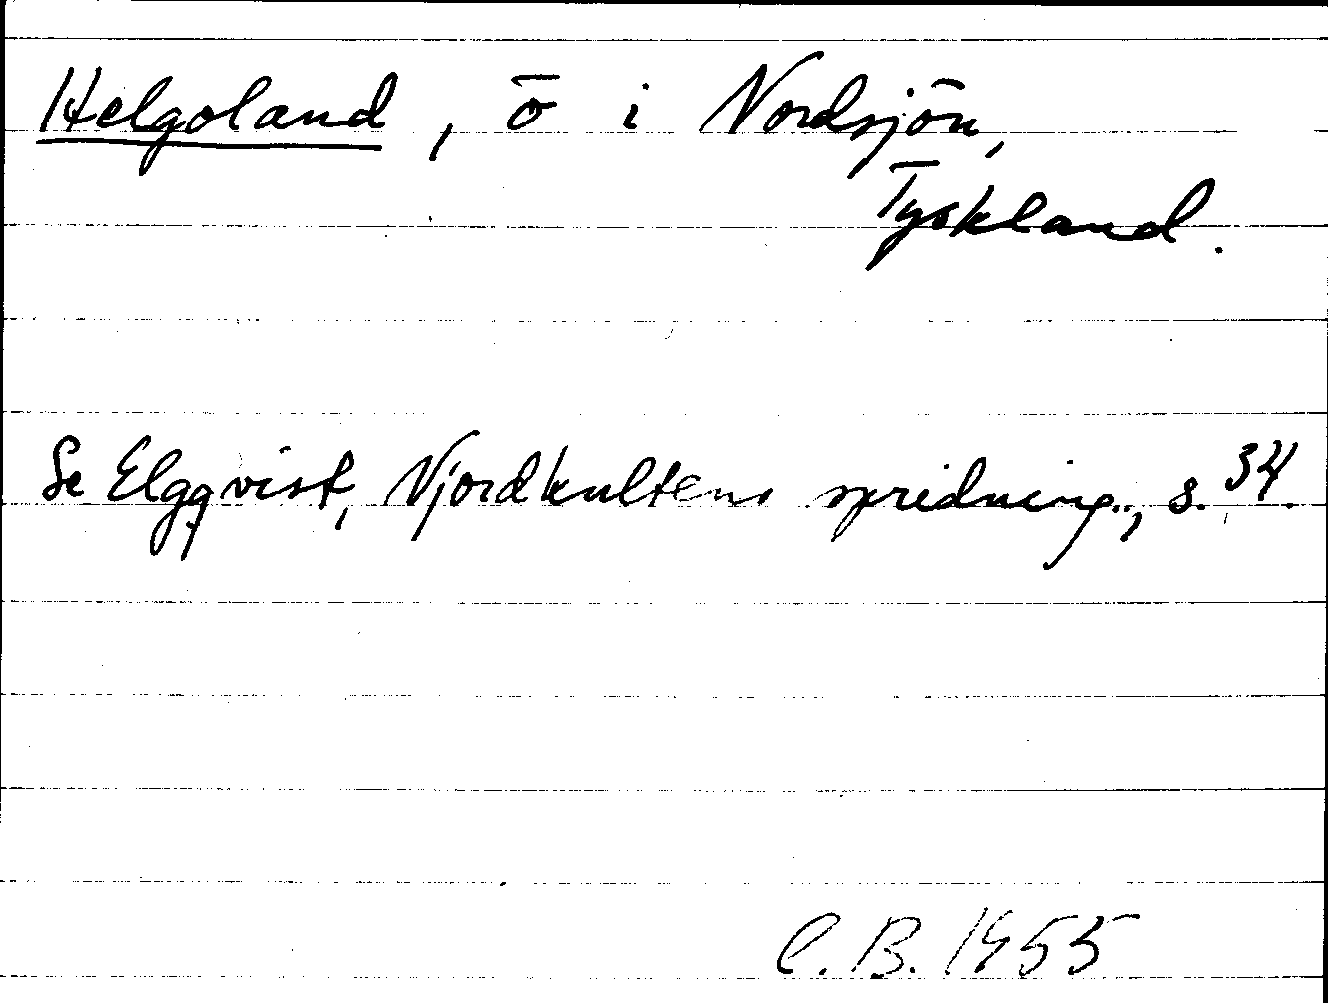 Helgoland, ö i Nordsjön,
Tyskland.
Se Elgqvist, Njordkultens spridning.., s. 34.
C.B. 1955